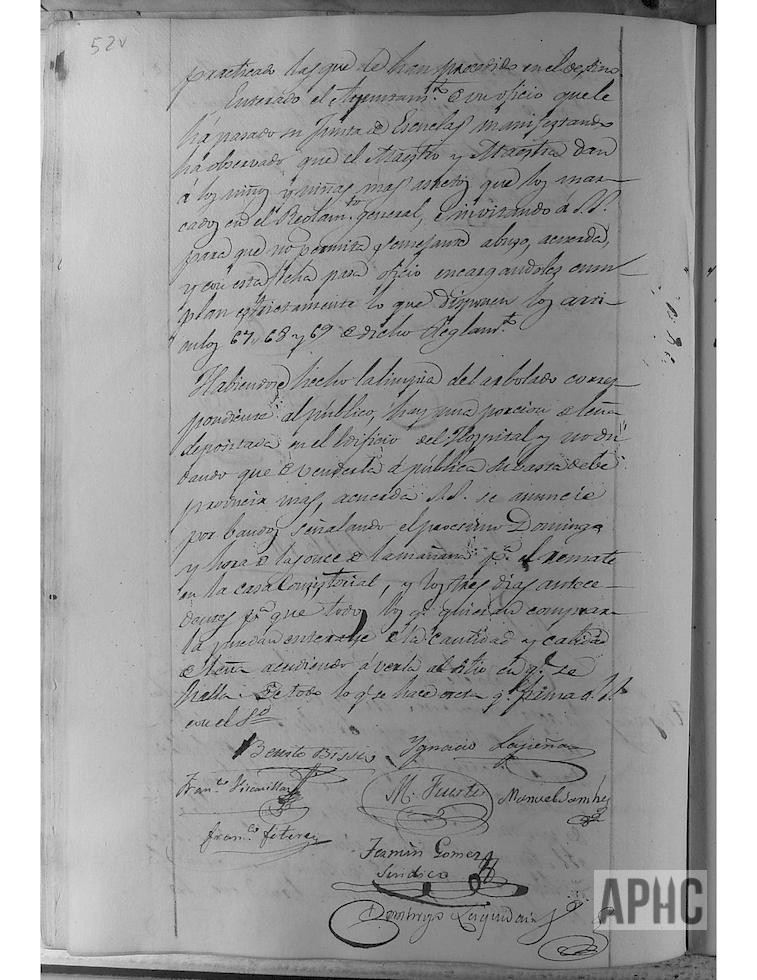 52v
practicado las que le han precedido en el destino.
Enterado el Ayuntam.to de un oficio que le
há pasado su Junta de Escuelas manifestando
há observado que el Maestro y Maestra dan
á los niños y niñas mas asuetos que los mar-
cados en el Reglam.to general, é invitando á S.S.
para que no permita semejante abuso, acuerda,
y con esta fecha pasa oficio encargandoles cum-
plan estrictamente lo que disponen los arti-
culos 67, 68 y 69 de dicho Reglam.to
Habiendose hecho la limpia del arbolado corres-
pondiente al público, hay una porcion de leña
depositada en el Edificio del Hospital y no du-
dando que de venderla á pública subasta debe
producir mas, acuerda S.S. se anuncie
por bandos señalando el procsimo Domingo
y hora de las once de la mañana p.a el remate
en la casa Consistorial, y los tres dias antece-
dentes p.a que todos los q.e quieran comprar-
la puedan enterarse de la cantidad y calidad
de leña acudiendo á verla al sitio en q.e se
halla. De todo lo q.e se hace acta q.e firma S.S.
con el S.rio
Benito Ignacio
Fran.co
M. Fuertes Manuel
Fran.co Fitera
Fermin Gomez
Sindico
Domingo
APHC